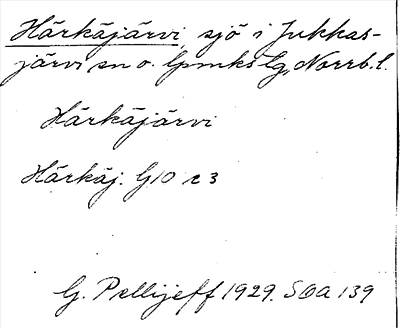 Härkäjärvi, sjö i Jukkas-
järvi sn o. lpmkslg, Norrb. l.
Härkäjärvi
Härkäj. G10 r 3
G. Pellijeff 1929. SOA 139